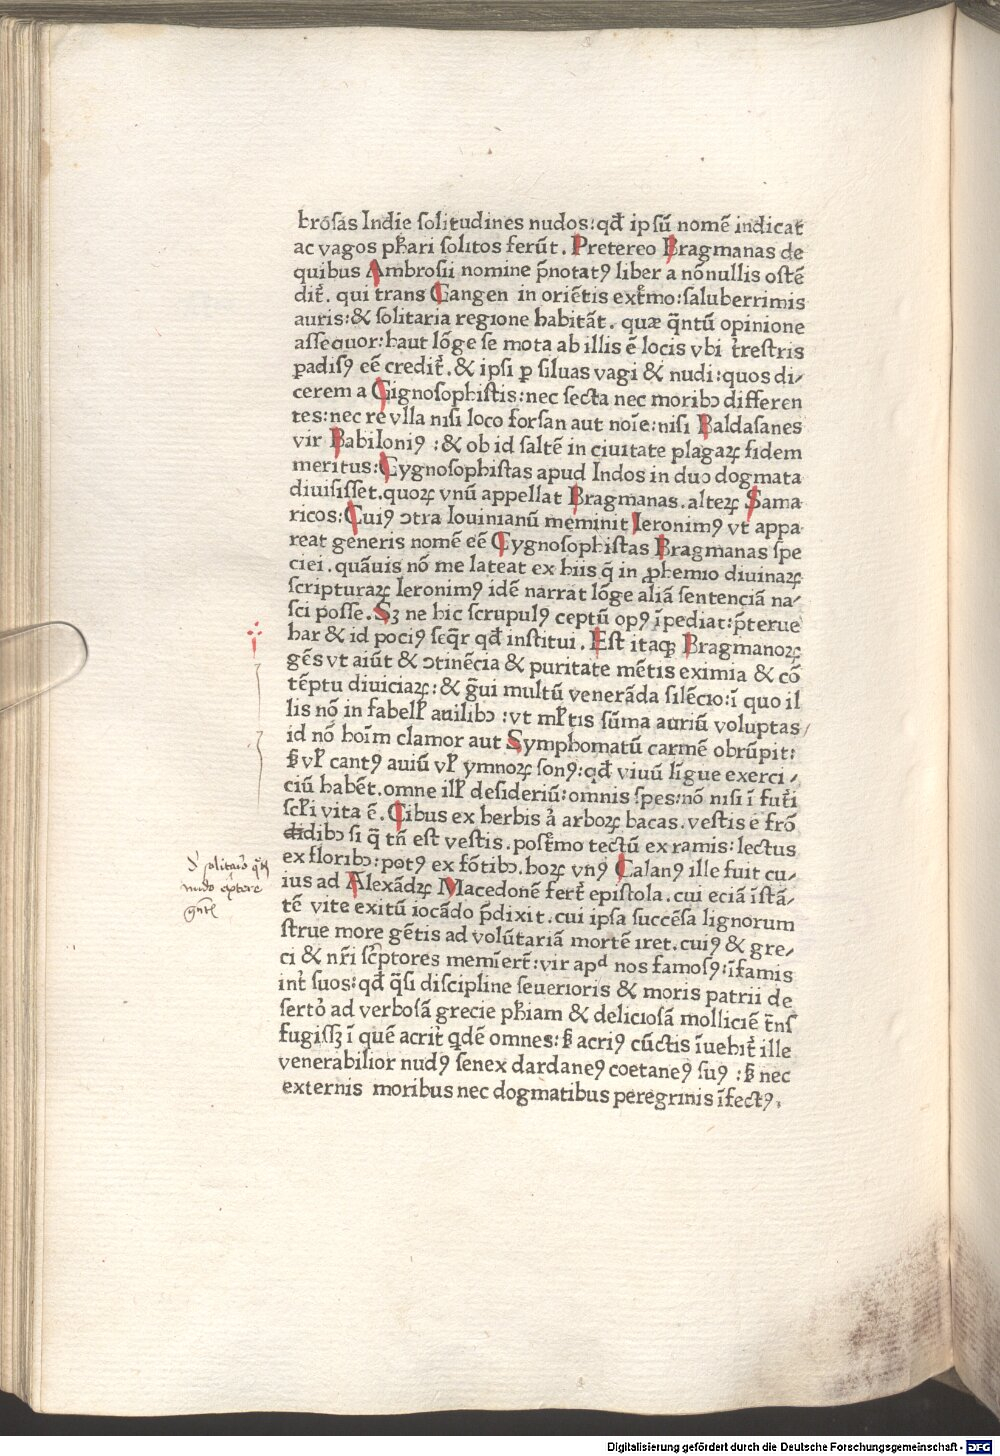 brōsas Indie solitudines nudos: qđ ipsū nomē indicat
ac vagos pħari solitos ferūt. Pretereo Bragmanas de
quibus Ambrosii nomine p̄notatꝰ liber a nōnullis ostē
dit᷑. qui trans Gangen in oriētis ext᷑mo: saluberrimis
auris: & solitaria regione habitāt. quæ q̄ntū opinione
assequor: haut lōge se mota ab illis ē locis vbi t᷑restris
padisꝰ eē credit᷑. & ipsi ꝑ siluas vagi & nudi: quos di/
cerem a Gignosophistis: nec secta nec moribꝫ differen
tes: nec re vlla nisi loco forsan aut noīe: nisi Baldasanes
vir Babiloniꝰ : & ob id saltē in ciuitate plagaꝝ fidem
meritus: Gygnosophistas apud Indos in duo dogmata
diuisisset. quoꝝ vnū appellat Bragmanas. alteꝝ Sama
ricos: Cuiꝰ ↄtra Iouinianū meminit Ieronimꝰ vt appa
reat generis nomē eē Gygnosophistas Bragmanas spe
ciei. quāuis nō me lateat ex hiis q̄ in ꝓhemio diuinaꝝ
scripturaꝝ Ieronimꝰ idē narrat lōge aliā sentenciā na/
sci posse. Sꝫ ne hic scrupulꝰ ceptū opꝰ īpediat: p̄terue
har & id pociꝰ seq̄r qđ institui. Est itaqꝫ Bragmanoꝝ
gēs vt aiūt & ↄtinēcia & puritate mētis eximia & cō
tēptu diuiciaꝝ: & g̃ui multū venerāda silēcio: ī quo il
lis nō in fabelꝉ anilibꝫ : vt mꝉtis sūma auriū voluptas/
id nō hoīm clamor aut Symphomatū carmē obrūpit:
ꝭ vꝉ cantꝰ auiū vꝉ ymnoꝝ sonꝰ: qđ viuū līgue exerci/
ciū habēt. omne ilꝉ desideriū: omnis spes: nō nisi ī fut᷑i
scꝉi vita ē. Cibus ex herbis a᷑ arboꝝ bacas. vestis e frō
didibꝫ si q̄ tn̄ est vestis. post᷑mo tectū ex ramis: lectus
ex floribꝫ: potꝰ ex fōtibꝫ. hoꝝ vnꝰ Calanꝰ ille fuit cu/
ius ad Alexādꝝ Macedonē fert᷑ epistola. cui eciā īstā/
tē vite exitū iocādo p̄dixit. cui ipsa succēsa lignorum
strue more gētis ad volūtariā mortē iret. cuiꝰ & gre/
ci & nr̄i sc᷑ptores memīert̄: vir apᵈ nos famosꝰ: īfamis
int᷑ suos: qđ q̄si discipline seuerioris & moris patrii de
serto᷑ ad verbosā grecie pħiam & deliciosā molliciē t̄ns
fugissꝫ ī quē acrit᷑ qͥdē omnes: ꝭ acriꝰ cūctis īuehit᷑ ille
venerabilior nudꝰ senex dardaneꝰ coetaneꝰ suꝰ : ꝭ nec
externis moribus nec dogmatibus peregrinis īfectꝰ.
Digitalisierung gefördert durch die Deutsche Forschungsgemeinschaft - DFG